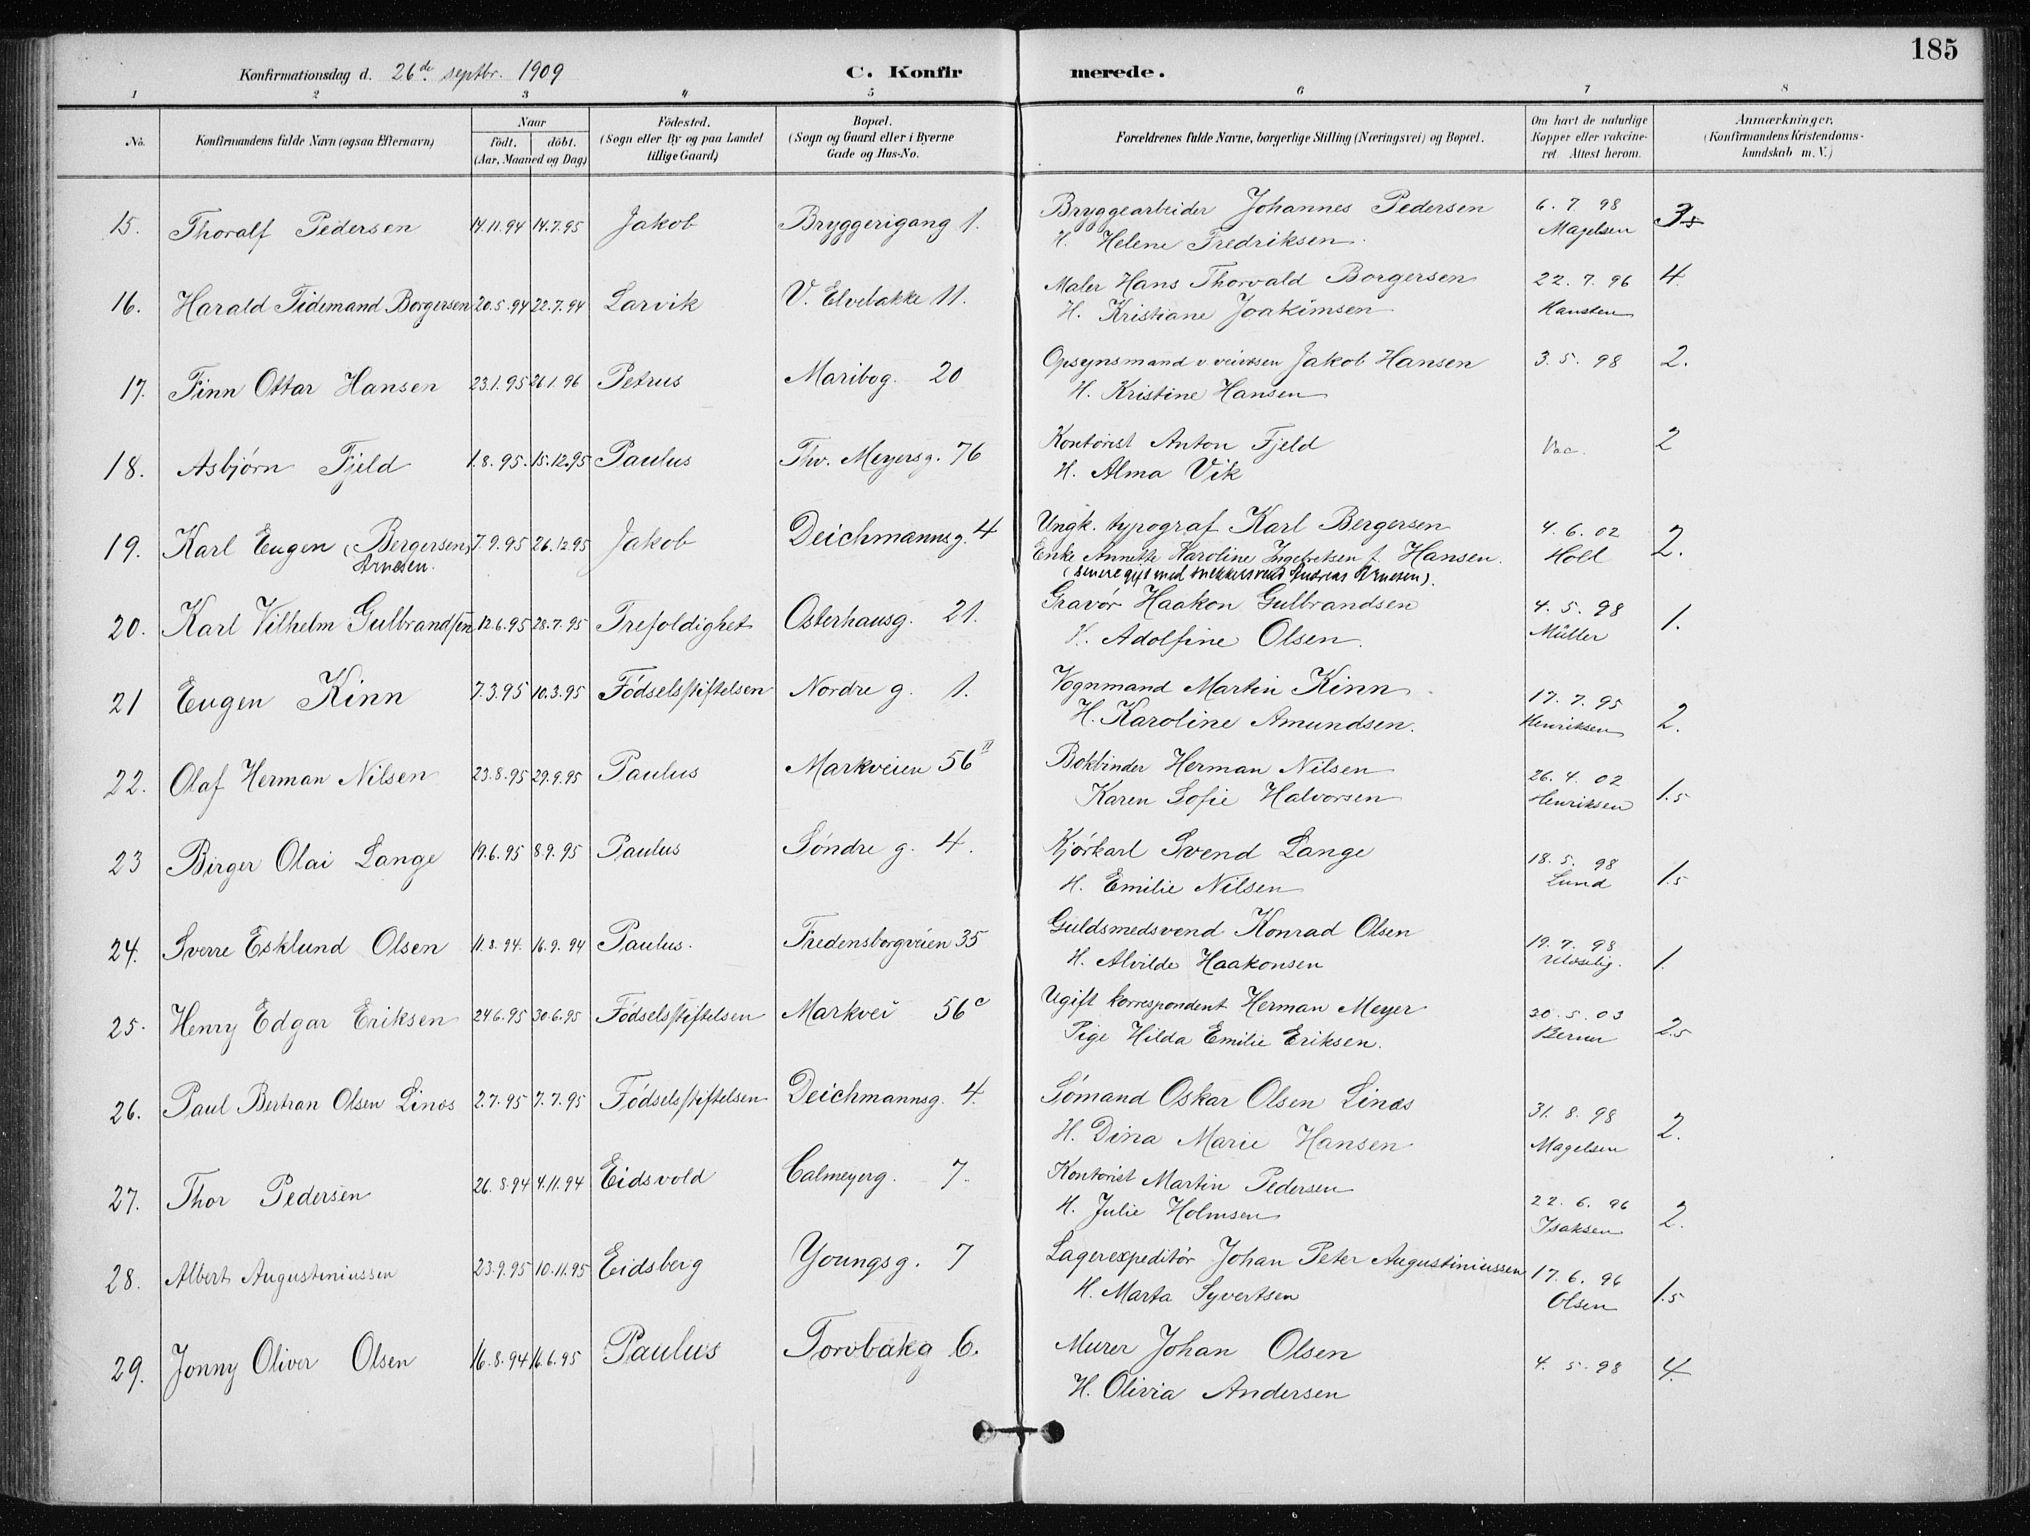 185
Konfirmationsdag d. 26de septbr. 1909 C. Konfirmerede.
1 2 3 4 5 6 7 8
No. Konfirmandens fulde Navn (ogsaa Efternavn) Naar født. døbt. (Aar, Maaned og Dag) Fødested. (Sogn eller By og paa Landet tillige Gaard) Bopæl. (Sogn og Gaard eller i Byerne Gade og Hus-No. Forældrenes fulde Navne, borgerlige Stilling (Næringsvei) og Bopæl. Om havt de naturlige Kopper eller vakcineret. Attest herom. Anmærkninger. (Konfirmandens Kristendomskundskab m. V.)
15. Thoralf Pedersen 14.11.94 14.7.95 Jakob Bryggerigang 1. Bryggearbeider Johannes Pedersen 6.7 98 3.5
H. Helene Fredriksen. Magelsen
16. Harald Tidemand Borgersen 20.5.94 22.7.94 Larvik V. Elvebakke 11. Maler Hans Thorvald Borgersen 22.7.96 4.
H. Kristiane Joakimsen Hansten
17. Finn Ottar Hansen 23.1.95 26.1.96 Petrus Maribog. 20 Opsynsmand v veivæsen Jakob Hansen 3.5.98 2.
H. Kristine Hansen
18. Asbjørn Fjeld 1.8.95. 15.12.95 Paulus Thv. Meyersg. 76 Kontorist Anton Fjeld Vac. 2
H. Alma Vik
19. Karl Eugen (Bergersen) 7.9.95 26.12.95 Jakob Deichmannsg. 4 Ungk. typograf Karl Bergersen 4.6.02 2.
Arnesen. Enke Annette Karoline Ingebretsen f. Hansen. Holl
(senere gift med snekkersvend Andreas Arnesen).
20. Karl Vilhelm Gulbrandsen 12.6.95 28.7.95 Trefoldighet Osterhausg. 21. Gravør Haakon Gulbrandsen 4.5.98 1.
H. Adolfine Olsen. Müller
21 Eugen Kinn 7.3.95 10.3.95 Fødselsstiftelsen Nordre g. 1. Vognmand Martin Kinn 17.7.95 2.
H. Karoline Amundsen. Henriksen
22. Olaf Herman Nilsen 23.8.95 29.9.95 Paulus Markveien 56 II Bokbinder Herman Nilsen 26.4.02 1.5
Karen Sofie Halvorsen Henriksen
23 Birger Olai Lange 19.6.95 8.9.95 Paulus Søndre g. 4. Kjørkarl Svend Lange 18.5.98 1.5
H. Emilie Nilsen Lund
24. Sverre Esklund Olsen 11.8.94. 16.9.94 Paulus. Fredensborgveien 35 Guldsmedsvend Konrad Olsen 19.7.98 1.
H. Alvilde Haakonsen
25. Henry Edgar Eriksen 24.6.95 30.6.95 Fødselsstiftelsen Markvei 56 c Ugift korrespondent Herman Meyer 20.5.03 2.5
Pige Hilda Emilie Eriksen. Berner
26. Paul Bertran Olsen Linos 2.7.95 7.7.95 Fødselsstiftelsen Deichmannsg. 4. Sømand Oskar Olsen Linos 31.8.98 2.
H. Dina Marie Hansen Magelsen
27. Thor Pedersen 26.8.94 4.11.94 Eidsvold Calmeyerg. 7. Kontorist Martin Pedersen 22.6.96 2.
H. Julie Holmsen Isaksen
28. Albert Augustiniussen 23.9.95 10.11.95 Eidsberg Youngsg. 7 Lagerexpeditør Johan Peter Augustiniussen 17.6.96 1.5
H. Marta Syvertsen Olsen
29. Jonny Oliver Olsen 16.8.94 16.6.95 Paulus Torvbakg 6. Murer Johan Olsen 4.5.98 4.
H. Olivia Andersen